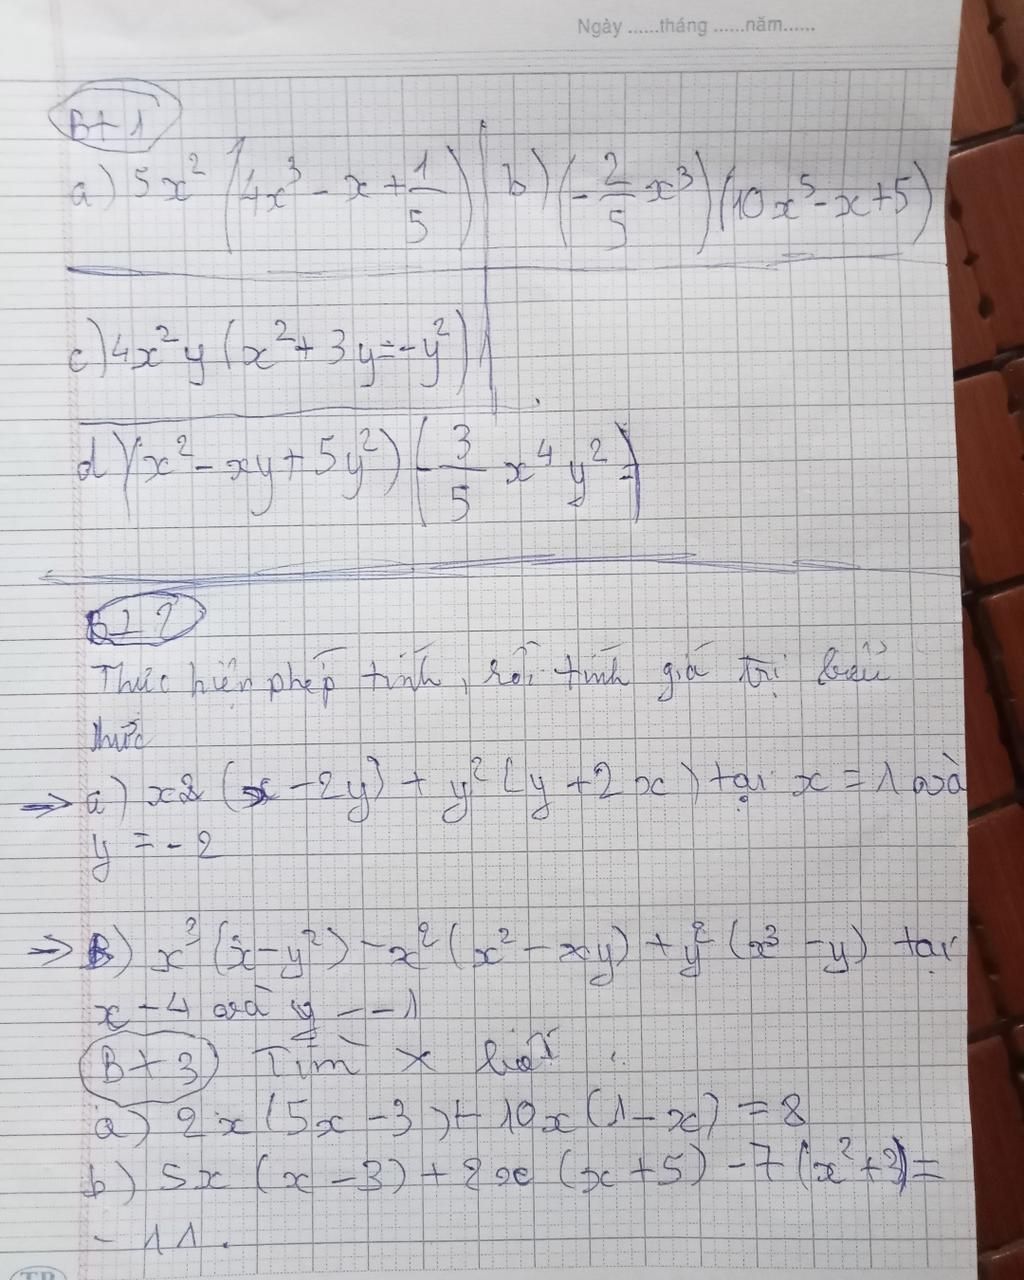 Ngày ......tháng ......năm......
B+1
a) 5x² (4x³ - x + 1/5) b) (-2/5 x³) (10x⁵ - x + 5)
c) 4x²y (x² + 3y = -y²)
d) (x² - xy + 5y²) (-3/5 x⁴ y² -)
B+2
Thức hiện phép tính, rồi tính giá trị biểu
thức
→ a) x2 (x - 2y) + y² (y + 2x) tại x = 1 và
y = - 2
→ B) x³ (x - y²) - x² (x² - xy) + y² (x³ - y) tại
x - 4 và y - - 1
B+3 Tìm x biết :
a) 2x (5x - 3) + 10x (1 - x) = 8
b) 5x (x - 3) + 2x (x + 5) - 7 (x² + 3) =
- 11.
TP